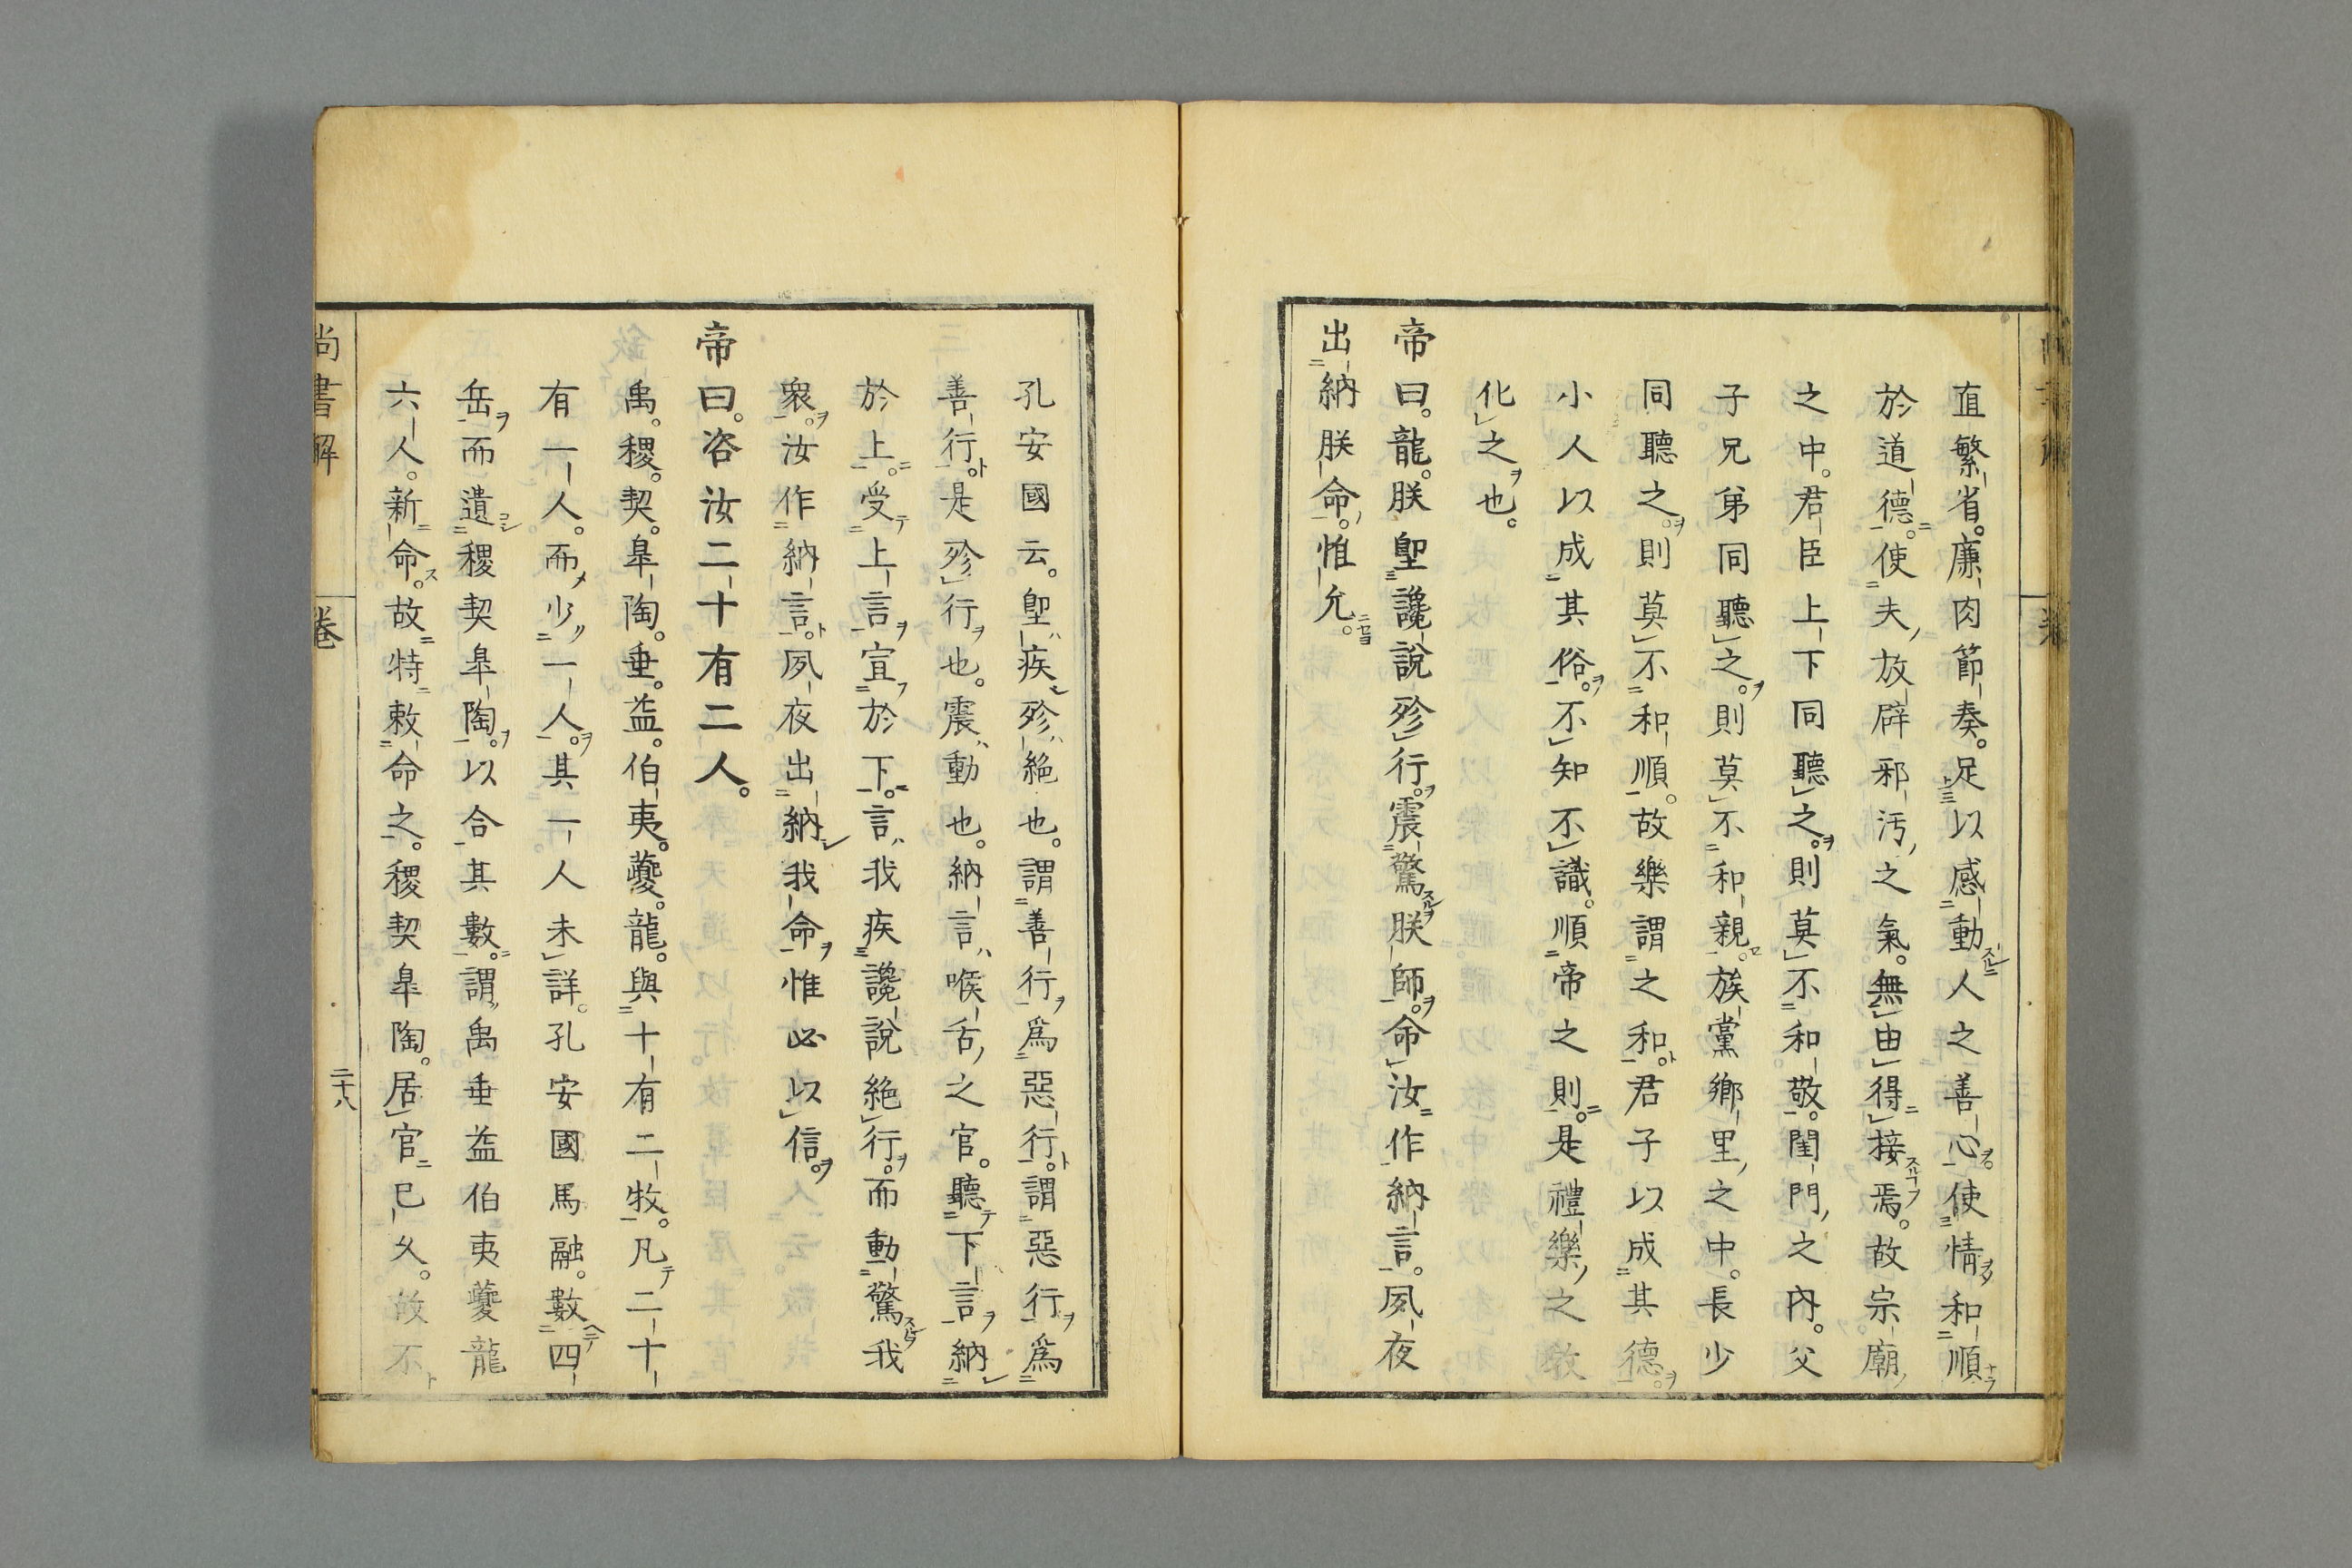 直繁省。廉肉節奏。足以感動人之善心。使情和順
於道德。使夫放辟邪汚之氣。無由得接焉。故宗廟
之中。君臣上下同聽之。則莫不和敬。閨門之內。父
子兄弟同聽之。則莫不和親。族黨鄉里之中。長少
同聽之。則莫不和順。故樂謂之和。君子以成其德。
小人以成其俗。不知不識。順帝之則。是禮樂之敎
化之也。
帝曰。龍。朕堲讒說殄行。震驚朕師。命汝作納言。夙夜
出納朕命。惟允。
孔安國云。堲疾殄絶也。謂善行爲惡行。謂惡行爲
善行。是殄行也。震動也。納言喉舌之官。聽下言納
於上。受上言宣於下。言我疾讒說絶行。而動驚我
衆。汝作納言。夙夜出納我命惟必以信。
帝曰。咨汝二十有二人。
禹。稷。契。皐陶。垂。益。伯夷。夔。龍。與十有二牧。凡二十
有一人。而少一人。其一人未詳。孔安國馬融。數四
岳而遺稷契皐陶。以合其數。謂禹垂益伯夷夔龍
六人。新命。故特敕命之。稷契皐陶。居官已久。故不
尚書解
卷
二十八